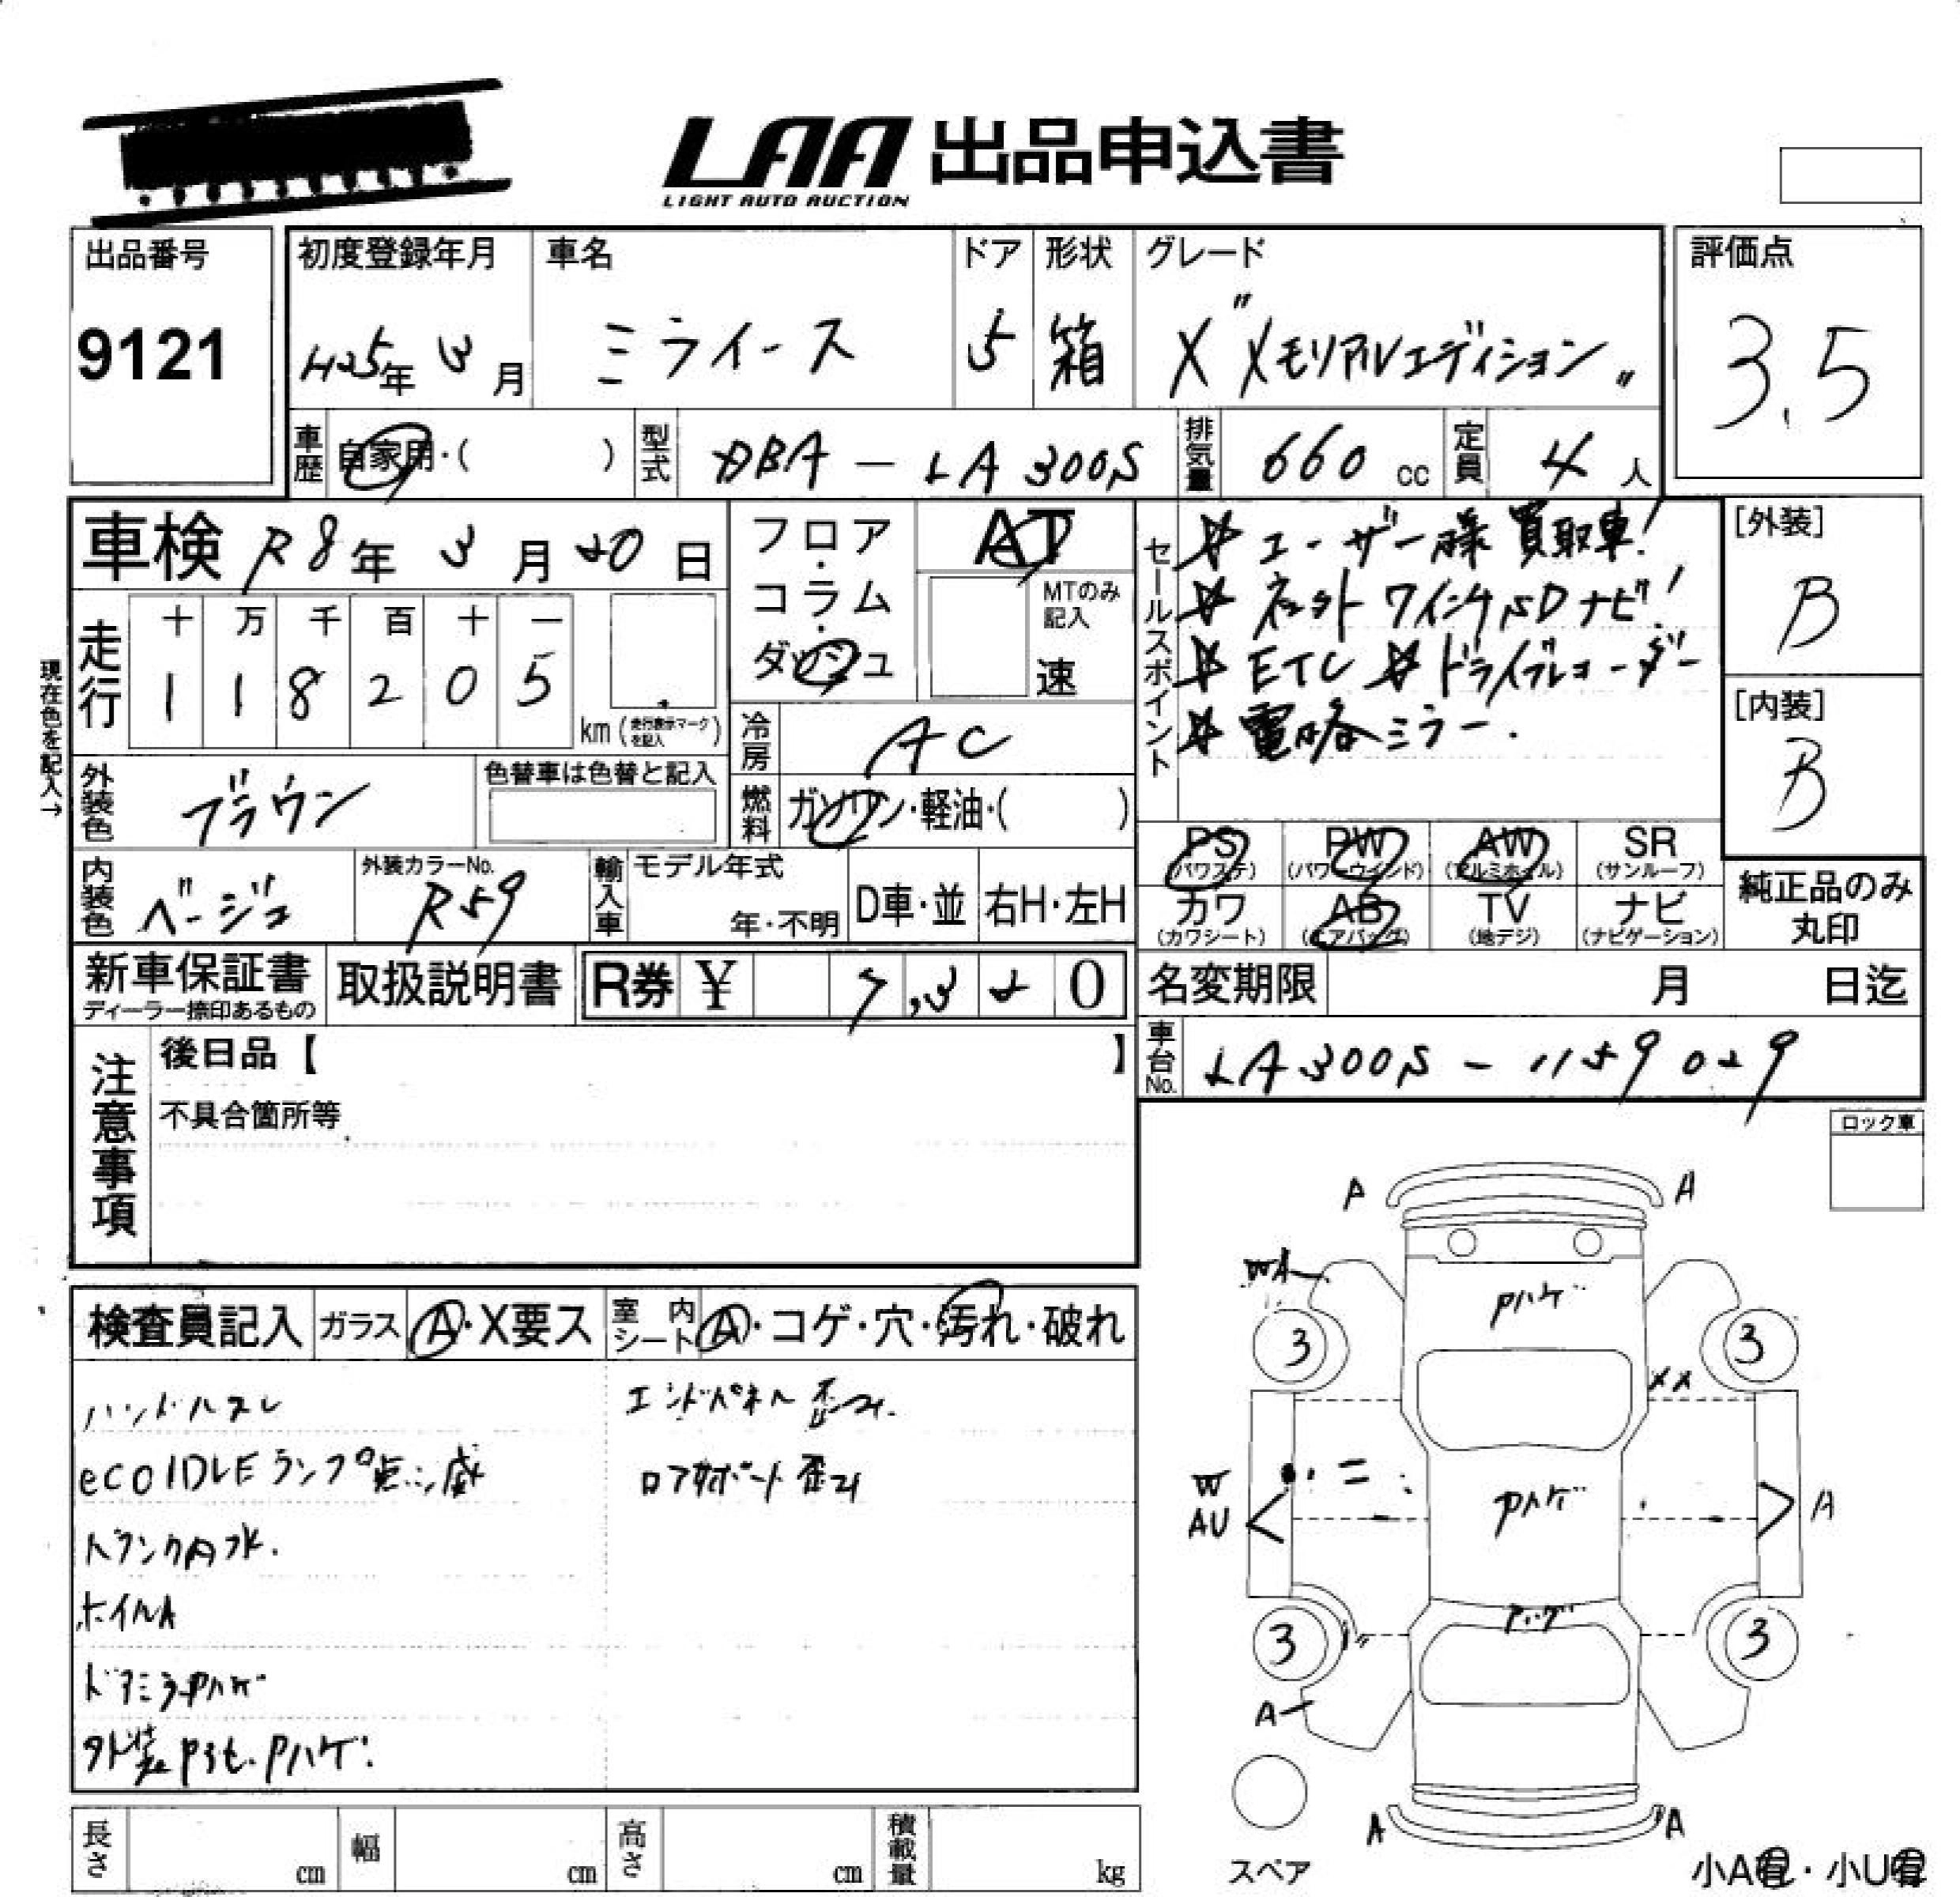 LAA 出品申込書
LIGHT AUTO AUCTION
出品番号
9121
初度登録年月
H25年 3月
車名
ミライース
ドア
5
形状
箱
グレード
X "メモリアルエディション"
評価点
3.5
車歴 自家用・( )
型式 DBA-LA300S
排気量 660 cc
定員 4 人
車検 R8年 3月 20日
フロア・コラム・ダッシュ
AT
MTのみ記入
速
セールスポイント
☆ユーザー様買取車!
☆ネットワインチSDナビ!
☆ETC ☆ドライブレコーダー
☆電格ミラー.
[外装]
B
[内装]
B
現在色を記入→
走行
十 万 千 百 十 一
1 1 8 2 0 5
km (走行表示マークを記入)
冷房 AC
燃料 ガソリン・軽油・( )
外装色 ブラウン
色替車は色替と記入
内装色 ベージュ
外装カラーNo.
R59
輸入車
モデル年式
年・不明
D車・並
右H・左H
PS (パワステ)
PW (パワーウインド)
AW (アルミホイル)
SR (サンルーフ)
カワ (カワシート)
AB (エアバッグ)
TV (地デジ)
ナビ (ナビゲーション)
純正品のみ丸印
新車保証書
ディーラー捺印あるもの
取扱説明書
R券 ¥ 7,320
名変期限 月 日迄
車台No. LA300S-1159029
注意事項
後日品【 】
不具合箇所等
ロック車
検査員記入
ガラス A・X要ス
室内シート A・コゲ・穴・汚れ・破れ
ハンドルスレ
eco IDLEランプ点滅
トランク内水.
ホイルA
ドアミラーPハゲ
外装Pヤセ.Pハゲ.
エンドパネル歪み.
ロアサポート歪み
A A
WA
Pハゲ
3 3
XX
W
AU
Pハゲ
A
Pハゲ
3 3
A
A A
スペア
小A有・小U有
長さ cm
幅 cm
高さ cm
積載量 kg